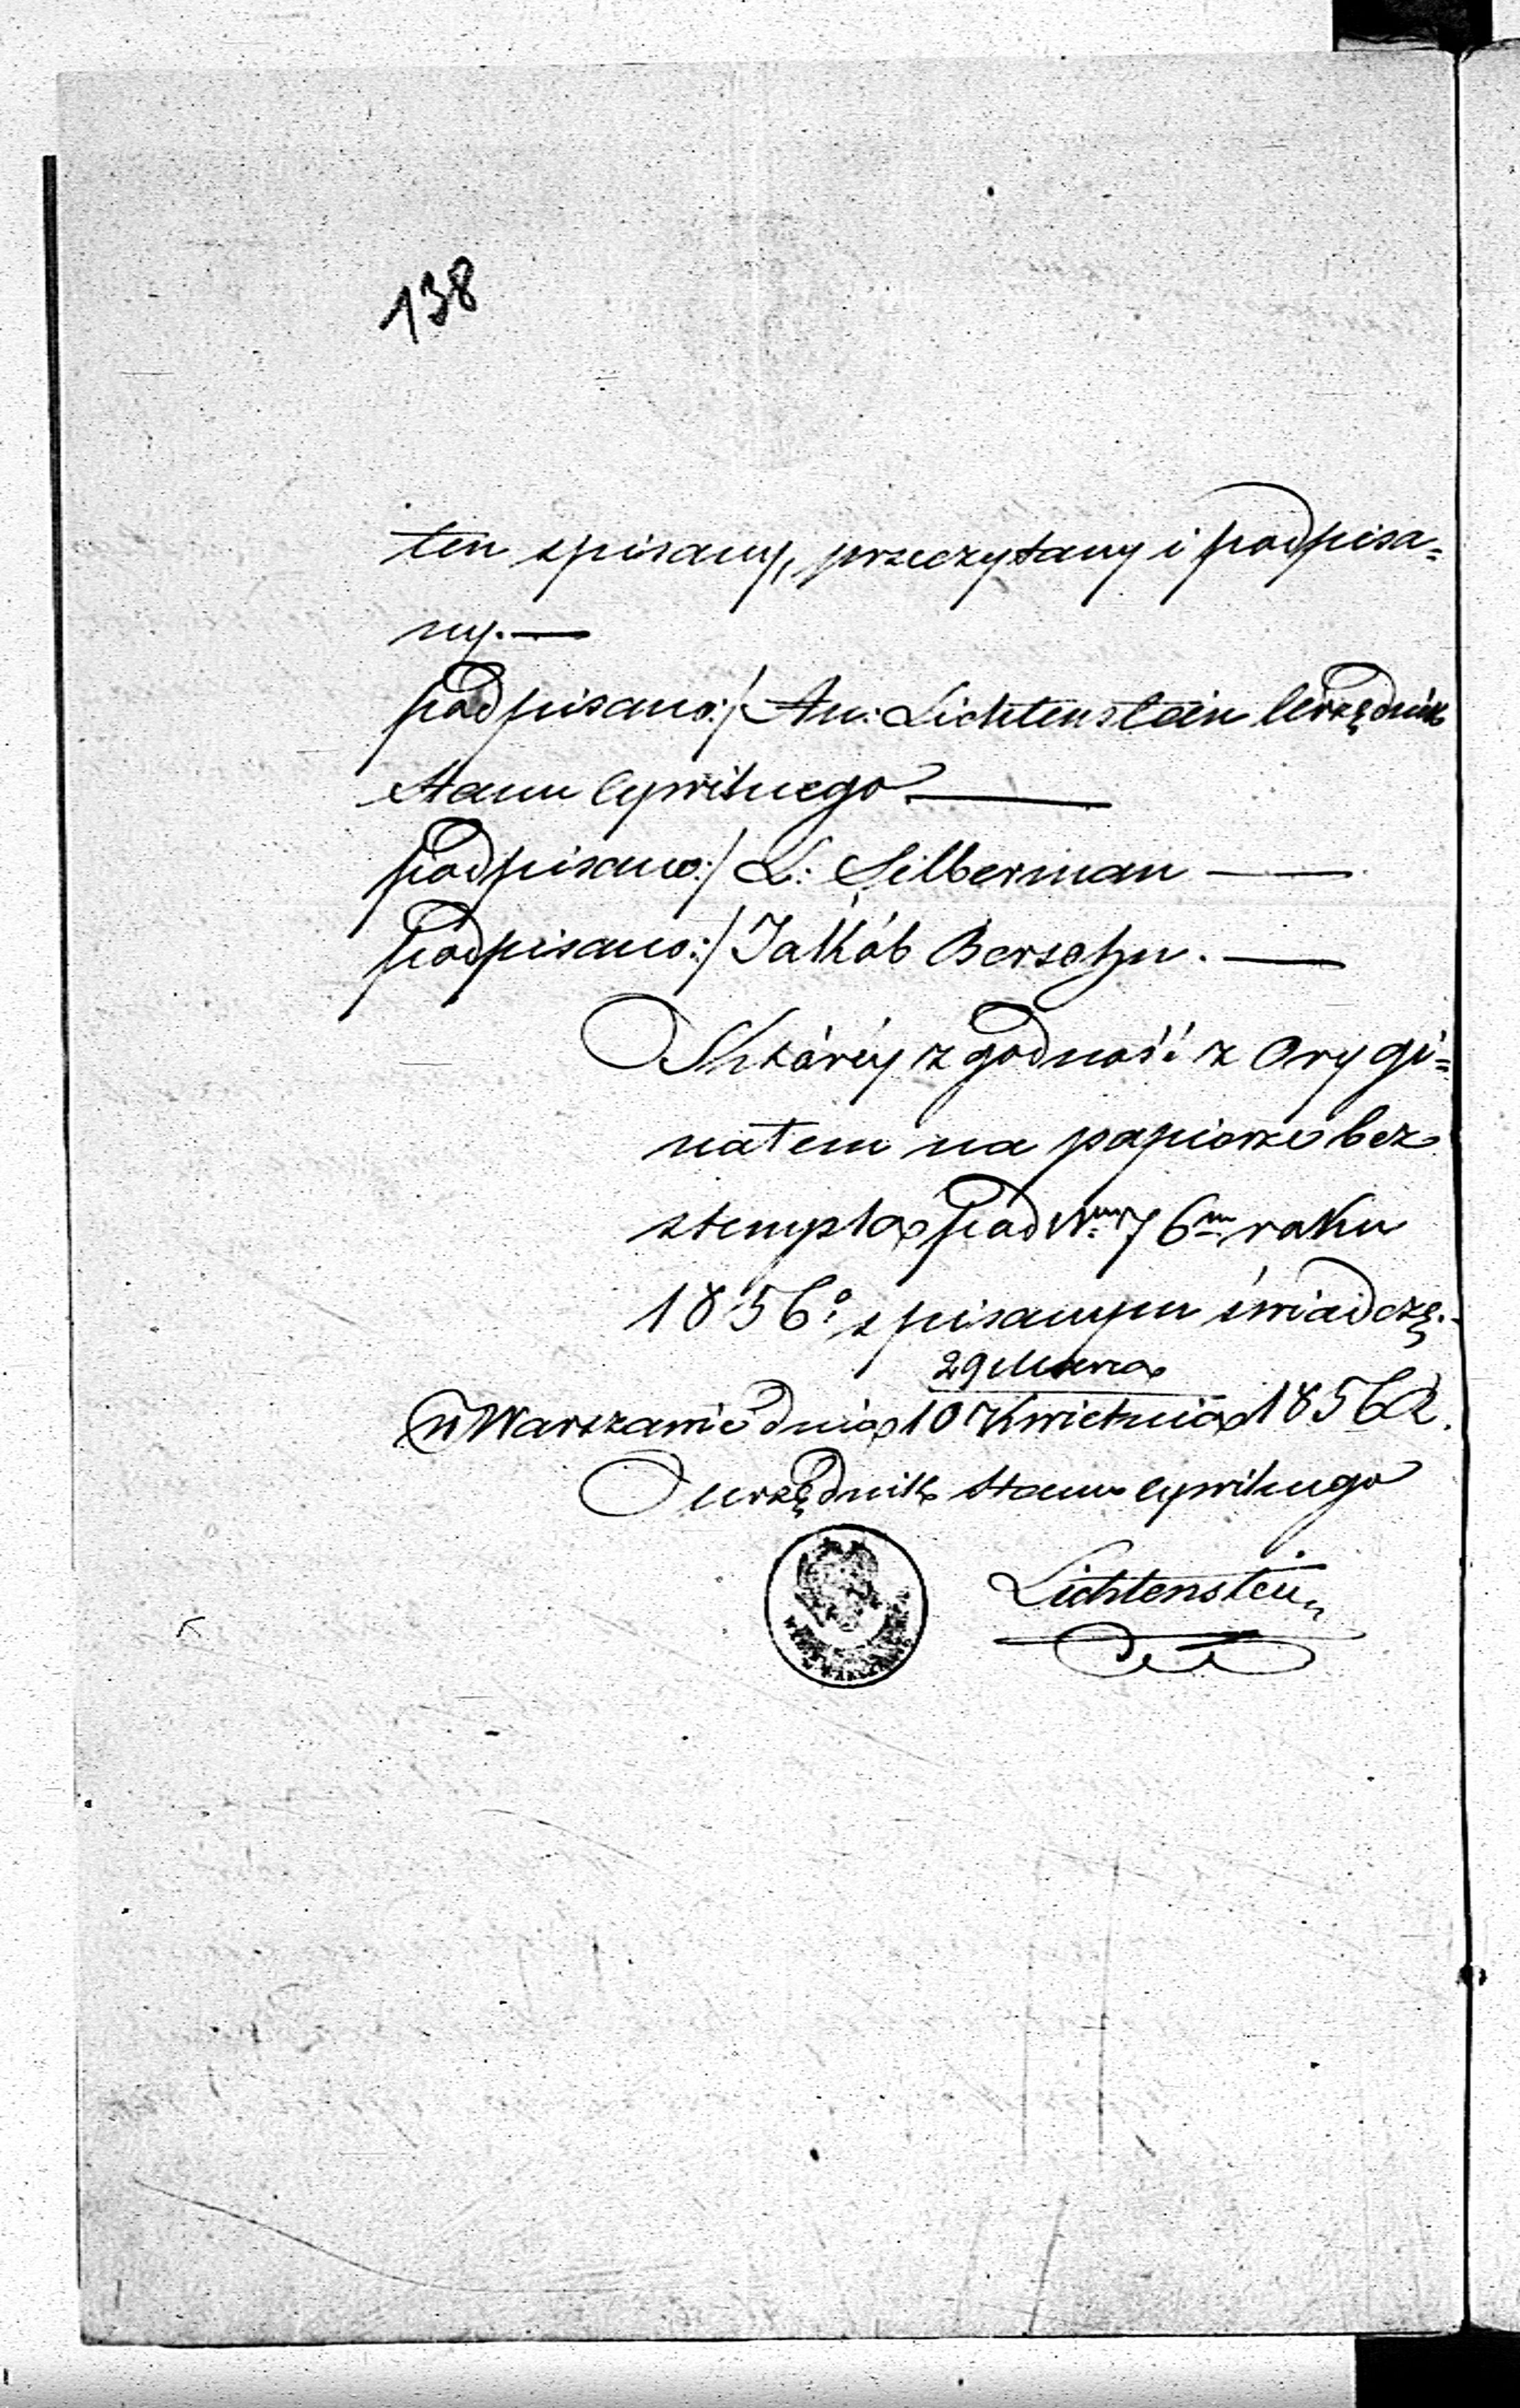 138
ten spisany, przeczytany i podpisa=
ny.—
podpisano:/ An: Lichtenstein Urzędnik
Stanu Cywilnego —
podpisano:/ L: Silberman —
podpisano:/ Jakób Bersohn. —
Któréy zgodność z Orygi=
nałem na papierze bez
stempla pod Nrem 76m roku
1856o spisanym świadczę.
29 Marca
w Warszawie dnia 10 Kwietnia 1856 R.
Urzędnik Stanu Cywilnego
Lichtenstein